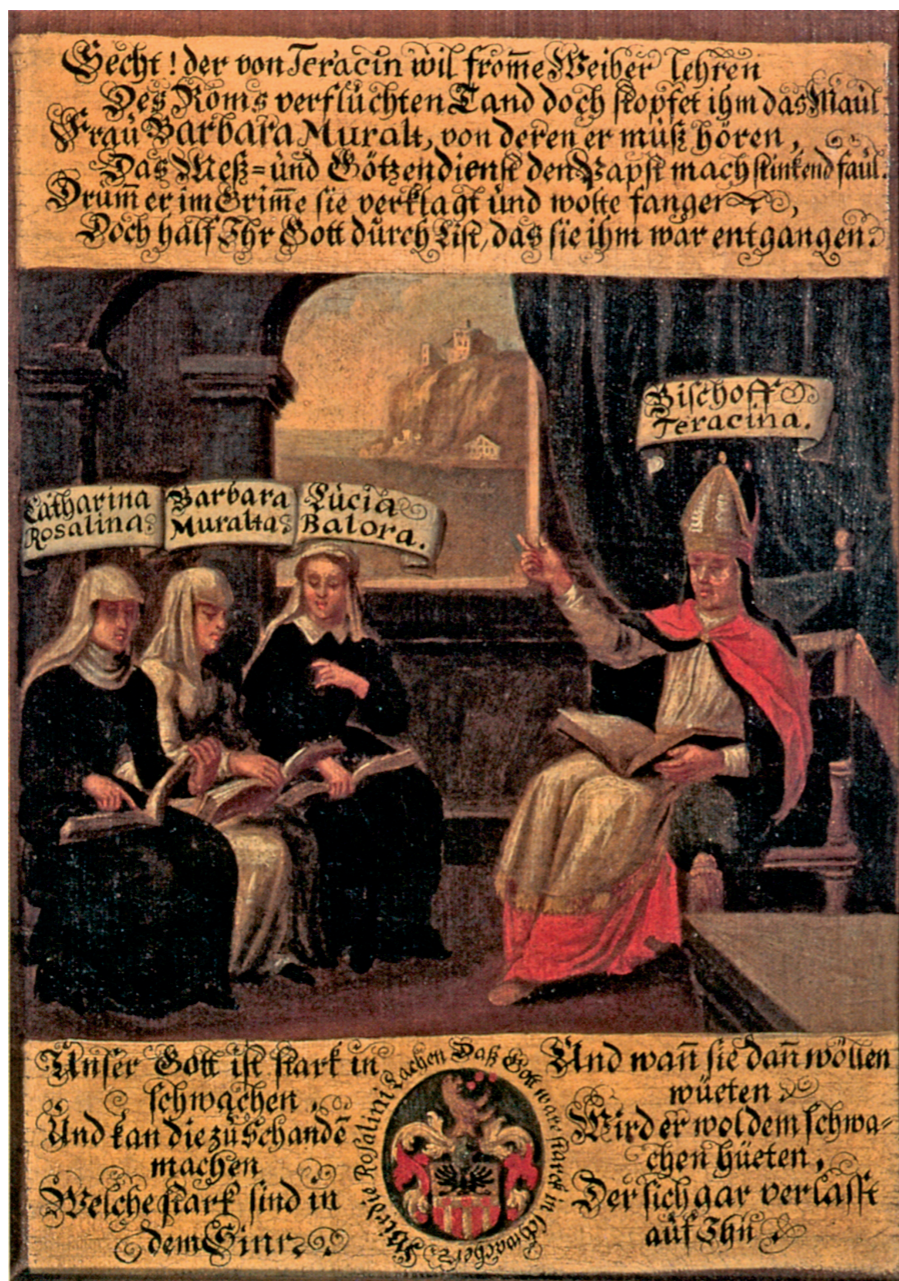 Secht! der von Teracin wil from̄e Weiber lehren
Des Roms verflüchten Tand doch stopfet ihm das Maul
Fraü Barbara Muralt, von deren er müß hören,
Das Meß= ünd Götzendienst den Papst mach stinkend faül.
Drüm̄ er im Grim̄e sie verklagt ünd wolte fangen,
Doch half Ihr Gott dürch List, das sie ihm war entgangen.
Bischoff
Teracina.
Catharina
Rosalina.
Barbara
Muralta.
Lücia
Balora.
Ünser Gott ist stark in
schwachen,
Ünd kan die zü Schandē
machen
Welche stark sind in
dem Sinn.
Rosalini Lachen Daß Gott ware starck in schwachen
Ünd wan̄ sie dan̄ wöllen
wüeten
Wird er wol dem schwa-
chen hüeten,
Der sich gar verlasst
aüf Ihn